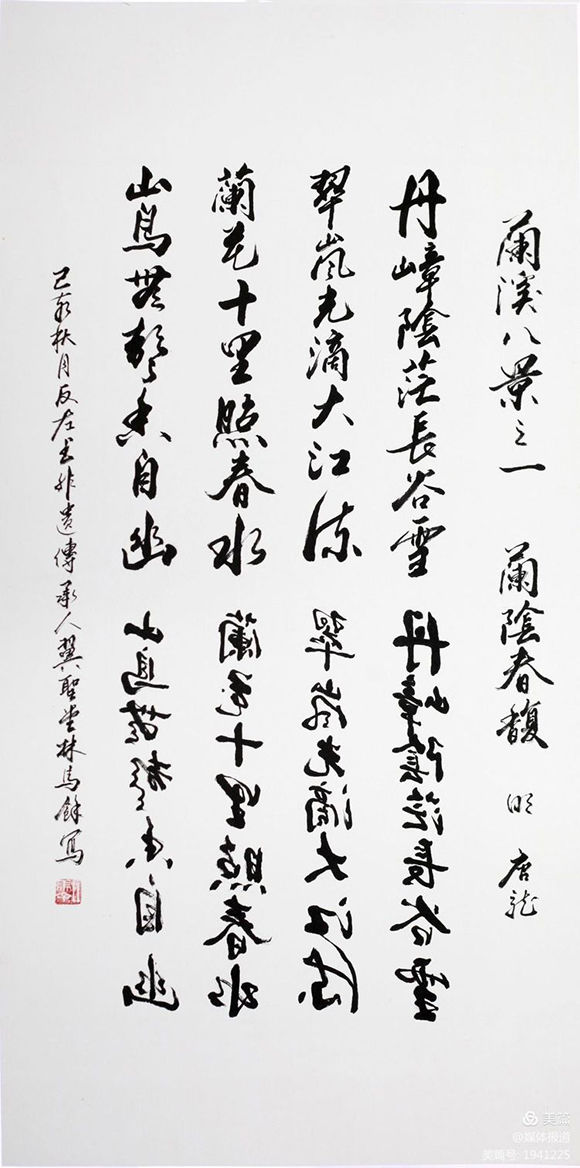 蘭溪八景之一 蘭陰春馥 明 唐龍
丹嶂陰茫長谷雪 丹嶂陰茫長谷雪
翠嵐光滴大江流 翠嵐光滴大江流
蘭花十里照春水 蘭花十里照春水
山鳥無聲香自幽 山鳥無聲香自幽
己亥秋月反左书非遺傳承人翼聖堂林馬餘寫
美篇
@媒体报道
美篇号: 1941225